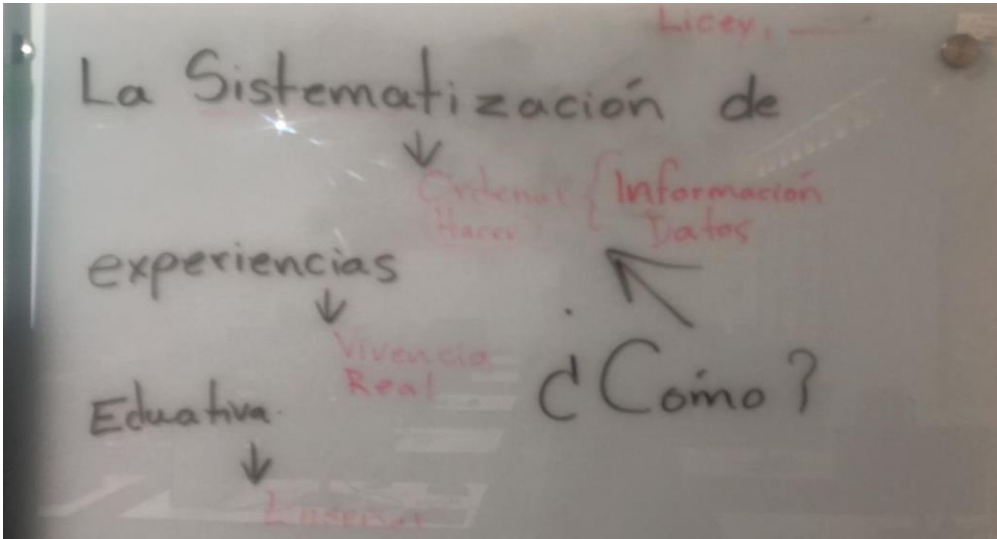 Licey,
La Sistematización de
↓
Ordenar { Información
Hacer Datos
experiencias
↓
Vivencia
Real
¿Como?
Eduativa
↓